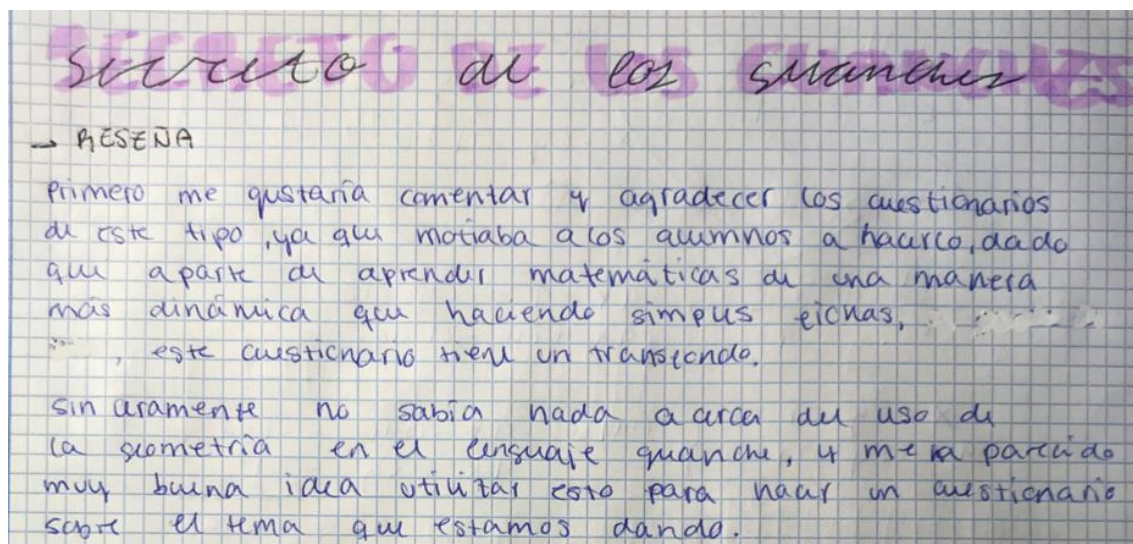 secreto de los guanches
→ RESEÑA
Primero me gustaría comentar y agradecer los cuestionarios
de este tipo, ya que motiaba a los alumnos a hacerlo, dado
que aparte de aprender matemáticas de una manera
más dinámica que haciendo simples fichas,
, este cuestionario tiene un trasfondo.
sinceramente no sabía nada acerca del uso de
la geometría en el lenguaje guanche, y me ha parecido
muy buena idea utilizar esto para hacer un cuestionario
sobre el tema que estamos dando.